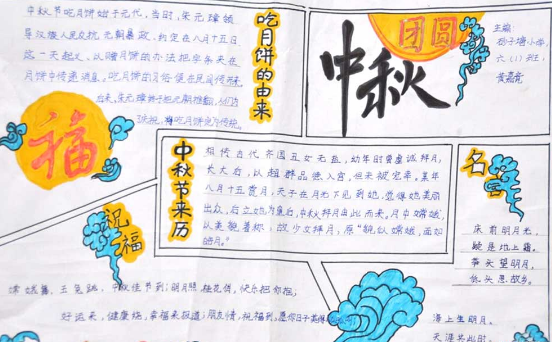 中秋节吃月饼始于元代,当时,朱元璋领
导汉族人民反抗元朝暴政,约定在八月十五日
这一天起义,以赠月饼的办法把字条夹在
月饼中传递消息。吃月饼的习俗便在民间传开来。
后来,朱元璋终于把元朝推翻,
吃月饼的由来
福
中秋
团圆
主编:
六(1)班:
中秋节来历
相传古代齐国丑女无盐,幼年时曾虔诚拜月,
长大后,以超群品德入宫,但未被宠幸。某年
八月十五赏月,天子在月光下见到她,觉得她美丽
出众,后立她为皇后,中秋拜月由此而来。月中嫦娥,
以美貌著称,故少女拜月,愿“貌似嫦娥,面如
皓月。”
名言
床前明月光,
疑是地上霜。
举头望明月,
低头思故乡。
祝福
嫦娥舞,玉兔跳,中秋佳节到;明月照,桂花俏,快乐把你抱;
好运来,健康绕,幸福来报道;朋友情,祝福到,愿你日子
海上生明月,
天涯共此时。